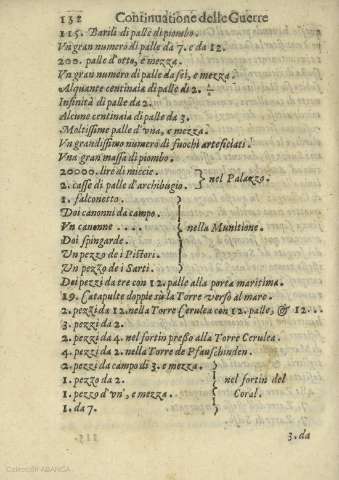 132 Continuatione delle Guerre
115. Barili di palle di piombo.
Vn gran numero di palle da 7. e da 12.
200. palle d'otto, e mezza.
Vn gran numero di palle da sei, e mezza.
Alquante centinaia di palle di 2. 1/2
Infinità di palle da 2.
Alcune centinaia di palle da 3.
Moltissime palle d'vna, e mezza.
Vn grandissimo numero di fuochi arteficiati.
Vna gran massa di piombo.
20000. lire di miccie.
2. casse di palle d'archibugio. } nel Palazzo.
1. falconetto.
Doi canonni da campo.
Vn canonne .... } nella Munitione.
Doi spingarde.
Vn pezzo de i Pistori.
Vn pezzo de i Sarti.
Dei pezzi da tre con 12. palle alla porta maritima.
19. Catapulte doppie sù la Torre verso al mare.
2. pezzi da 12. nella Torre Cerulea con 12. palle, & 12...
3. pezzi da 2.
2. pezzi da 4. nel fortin presso alla Torre Cerulea.
4. pezzi da 2. nella Torre de Pfauschinden.
2. pezzi da campo di 3. e mezza.
1. pezzo da 2. } nel fortin del
1. pezzo d'vn', e mezza. Coral.
1. da 7.
3. da
Colección ABANCA